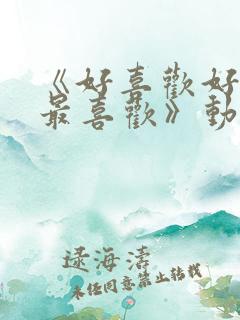 《好喜歡好
最喜歡》動
逯海濤
未经同意禁止转载